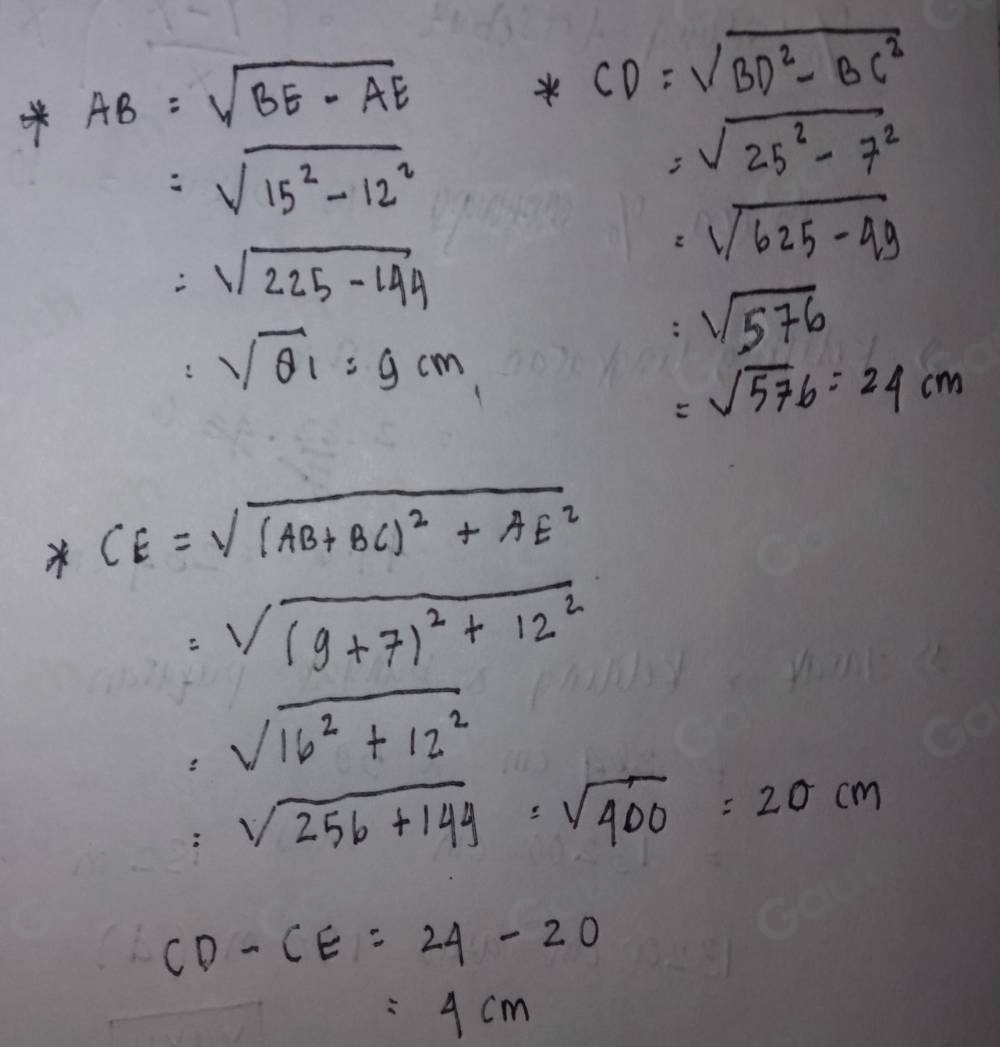 * AB = √(BE - AE)
= √(15² - 12²)
= √(225 - 144)
= √81 = 9 cm
* CD = √(BD² - BC²)
= √(25² - 7²)
= √(625 - 49)
= √576
= √576 = 24 cm
* CE = √((AB + BC)² + AE²)
= √((9 + 7)² + 12²)
= √(16² + 12²)
= √(256 + 144) = √400 = 20 cm
CD - CE = 24 - 20
= 4 cm